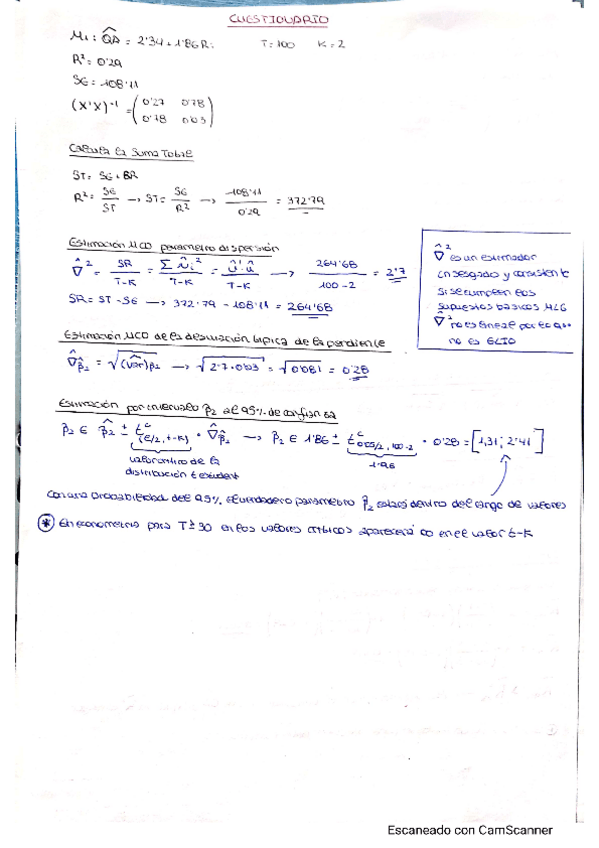 CUESTIONARIO
M1: Q̂A = 2'34 + 1'86 Ri T=100 K=2
R² = 0'29
SE = 108'11
(X'X)⁻¹ = (0'27 0'78
0'78 0'03)
Calcula la Suma Total
ST = SE + SR
R² = SE/ST → ST = SE/R² → 108'11/0'29 = 372'79
Estimación MCO parámetro dispersión
σ̂² = SR/T-K = Σ û i²/T-K = û'·û/T-K → 264'68/100-2 = 2'7
SR = ST - SE → 372'79 - 108'11 = 264'68
σ̂² es un estimador
insesgado y consistente
si se cumplen los
supuestos básicos MLG
σ̂² no es lineal por lo que
no es ELIO
Estimación MCO de la desviación típica de la pendiente
σ̂β̂2 = √(Var)β2 → √2'7·0'03 = √0'081 = 0'28
Estimación por intervalo β2 al 95% de confianza
β2 ∈ β̂2 ± t^c(ε/2, t-k) · σ̂β̂2 → β2 ∈ 1'86 ± t^c 0'05/2, 100-2 · 0'28 = [1,31; 2'41]
valor crítico de la 1'96
distribución t student
Con una probabilidad del 95% el verdadero parámetro β2 estará dentro del rango de valores
* En econometría para T ≥ 30 en los valores críticos aparecerá ∞ en el valor t-k
Escaneado con CamScanner